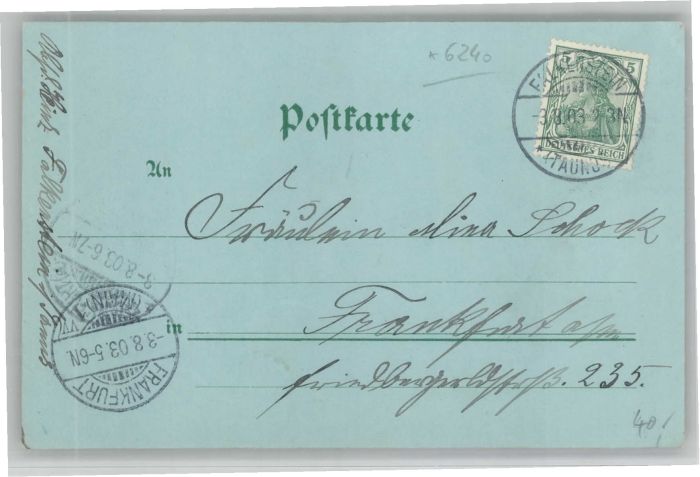 *6240
5 5
DEUTSCHES REICH
FALKENSTEIN
-3.8.03 2-3N.
*(TAUNUS)
Postkarte
An
Fräulein Lina Schock
in Frankfurt a/M
Friedbergerldstrß. 235.
40,
Falkenstein i/Taunus
3-8.03.6-7N
FRANKFURT
-3.8.03.5-6N.
(MAIN) 1